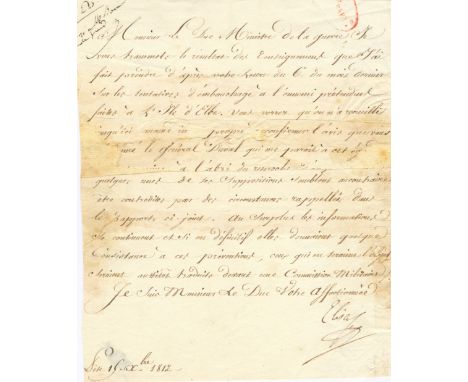 Monsieur Le Duc Ministre de la guerre, Je
vous transmets le résultat des Enseignemens que J'ai
fait prendre d'après votre Lettre du 6 du mois dernier
Sur les tentatives d'embauchage à l'ennemi prétendues
faites à L'Ile d'Elbe. Vous verrez qu'on n'a recueilli
propre confirmer l'avis que vous
le Général Duval qui me parait à cet
à l'abri du reproche
quelques unes de ses Suppositions Semblent au contraire
être contredites par des circonstances rappellées dans
le Rapport ci joint. Au Surplus les informations
Se continuent et si en définitif elles donnaient quelque
Consistance à ces préventions, ceux qui en seraient l'objet
seraient aussitôt traduits devant une Commission Militaire.
Je Suis Monsieur Le Duc Votre Affectionnée
Elisa
15 Xbre 1812